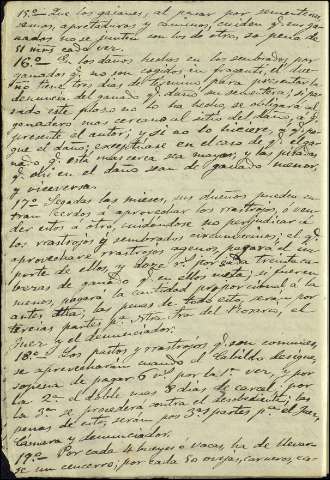 15.º Que los gañanes, al pasar por sementeras
cañadas no se junten con los de otro, so pena de
51 mrs cada vez.
16.º En los daños hechos en los sembrados, por
ganados q. no son cogidos en fraganti, el due-
ño tiene tres días de término para presentar la
denuncia del ganado q. dañó su sementera; si pa-
sado este plazo no lo ha hecho, se obligará al
ganadero mas cercano al sitio del daño, á q.
presente el autor; y si no lo hiciere, q. pa-
gue el daño; exceptúase en el caso de q. el ga-
nado q. está mas cerca sea mayor; y las pisadas
q. dice en el daño sean de ganado menor,
y viceversa.
17.º Segadas las mieses, sus dueños pueden en-
trar cerdos á aprovechar los rastrojos, ó ven-
der estos á otro, cuidándose no perjudicar á
los rastrojos y sembrados circunvecinos; el q.
aprovechare rastrojos agenos, pagará el im-
porte de ellos, y doze rs. por cada treinta ca-
bezas de ganado q. en ellos meta; si fueren
menos, pagará la cantidad proporcional á la
antes dha; las penas de todo esto, serán por
tercias partes pa. Ntra. Sra. del Rosario, el
Juez y el denunciador.
18.º Los pastos y rastrojos q. son comunes,
se aprovecharán cuando el Cabildo designe,
sopena de pagar 6 rs. por la 1.ª vez, y por
la 2.ª el doble mas 8 días de carcel; por
la 3.ª se procederá contra el desobediente; las
penas de esto, serán por 3.as partes pa. el Juez,
Camara y denunciador.
19.º Por cada 4 bueyes ó vacas, ha de llevar-
se un cencerro; por cada 50 ovejas, carneros, ca-